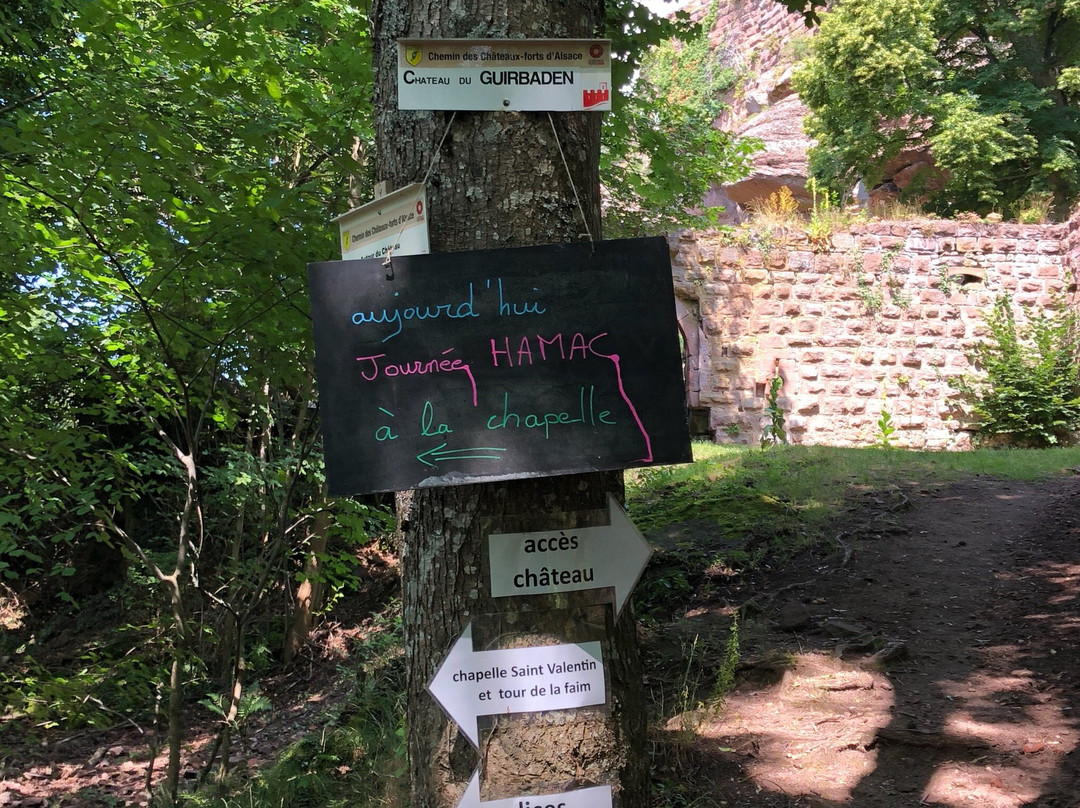 Chemin des Châteaux-forts d'Alsace
CHATEAU DU GUIRBADEN
Chemin des Châteaux-forts d'Alsace
aujourd'hui
Journée HAMAC
à la chapelle
accès
château
chapelle Saint Valentin
et tour de la faim
lices